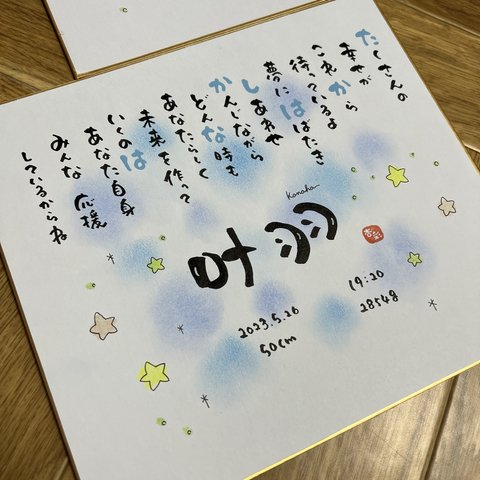 たくさんの
幸せが
これから
待っているよ
夢にはばたき
しあわせ
かんじながら
どんな時も
あなたらしく
未来を作って
いくのは
あなた自身
みんな 応援
しているからね
Kanaha
叶羽
2023.5.26 19:20
50cm 2854g